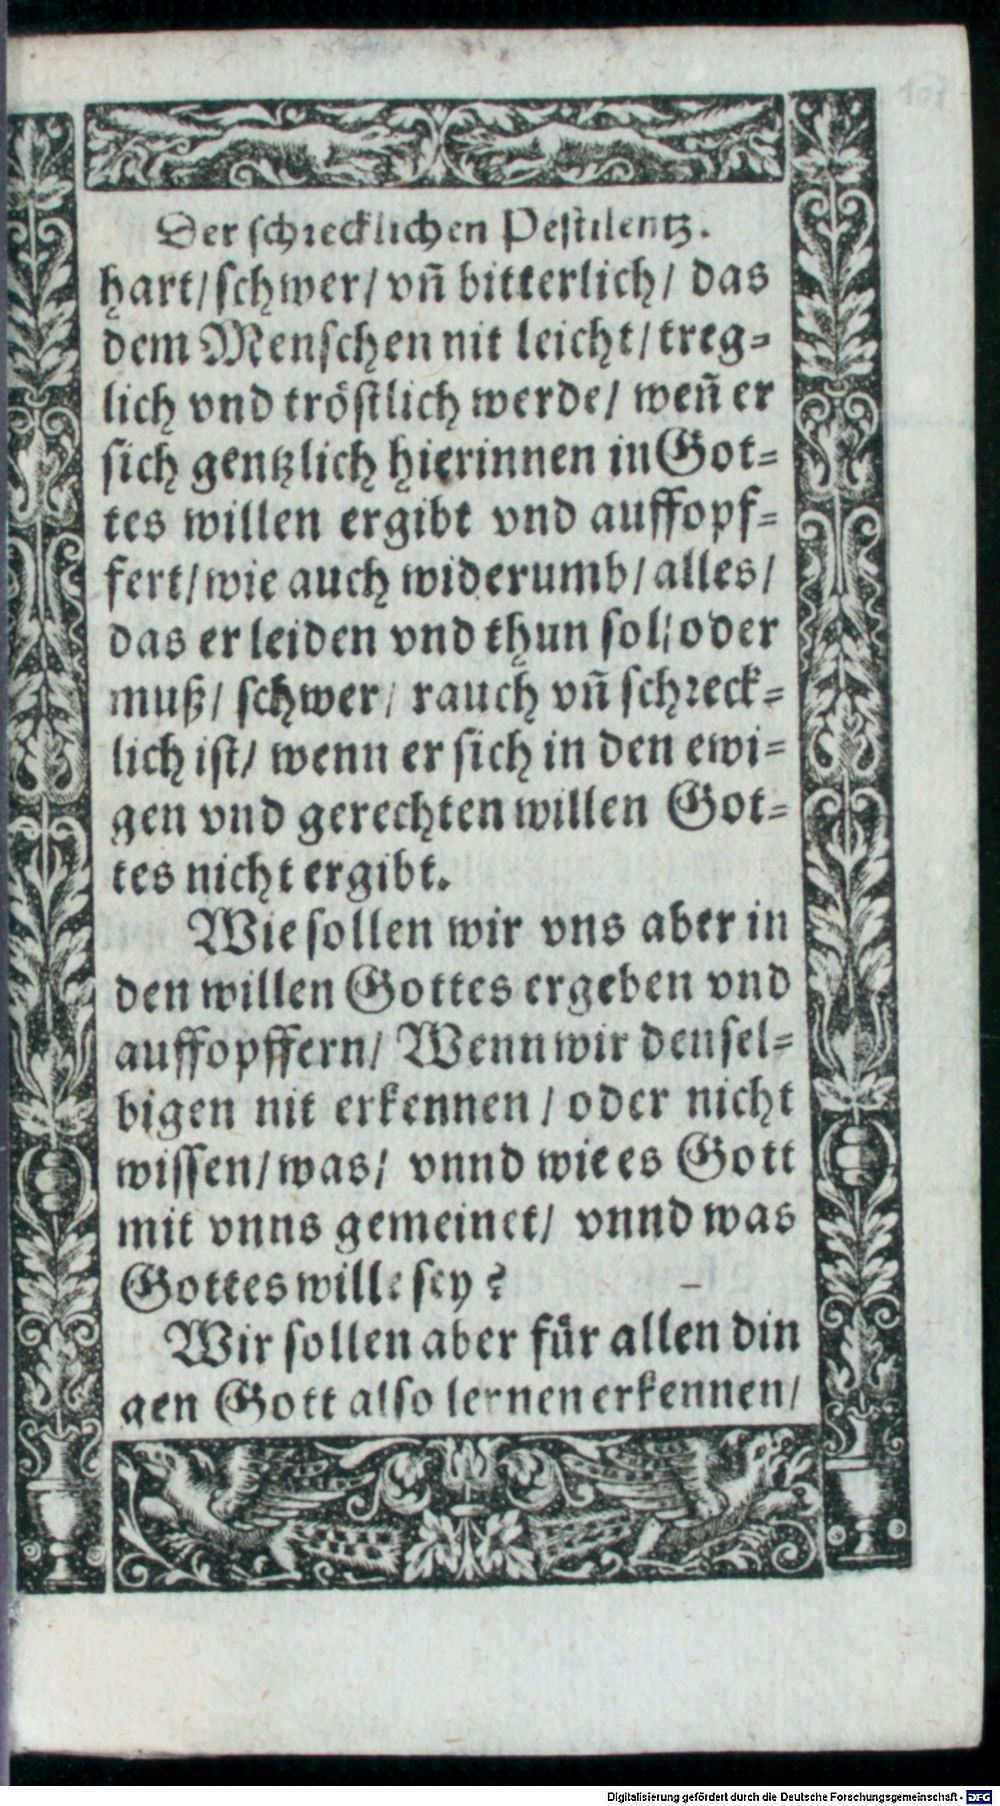 Der schrecklichen Pestilentz.
hart/ schwer/ vñ bitterlich/ das
dem Menschen nit leicht/ treg⸗
lich vnd tröstlich werde/ weñ er
sich gentzlich hierinnen in Got⸗
tes willen ergibt vnd auffopf⸗
fert/ wie auch widerumb/ alles/
das er leiden vnd thun sol/ oder
muß/ schwer/ rauch vñ schreck⸗
lich ist/ wenn er sich in den ewi⸗
gen vnd gerechten willen Got⸗
tes nicht ergibt.
Wie sollen wir vns aber in
den willen Gottes ergeben vnd
auffopffern/ Wenn wir densel⸗
bigen nit erkennen / oder nicht
wissen/ was/ vnnd wie es Gott
mit vnns gemeinet/ vnnd was
Gottes wille sey?
Wir sollen aber für allen din
gen Gott also lernen erkennen/
Digitalisierung gefördert durch die Deutsche Forschungsgemeinschaft - DFG